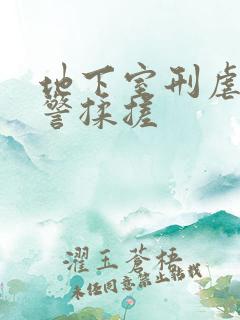 地下室刑虐
警揉搓
濯玉苍梧
未经同意禁止转载